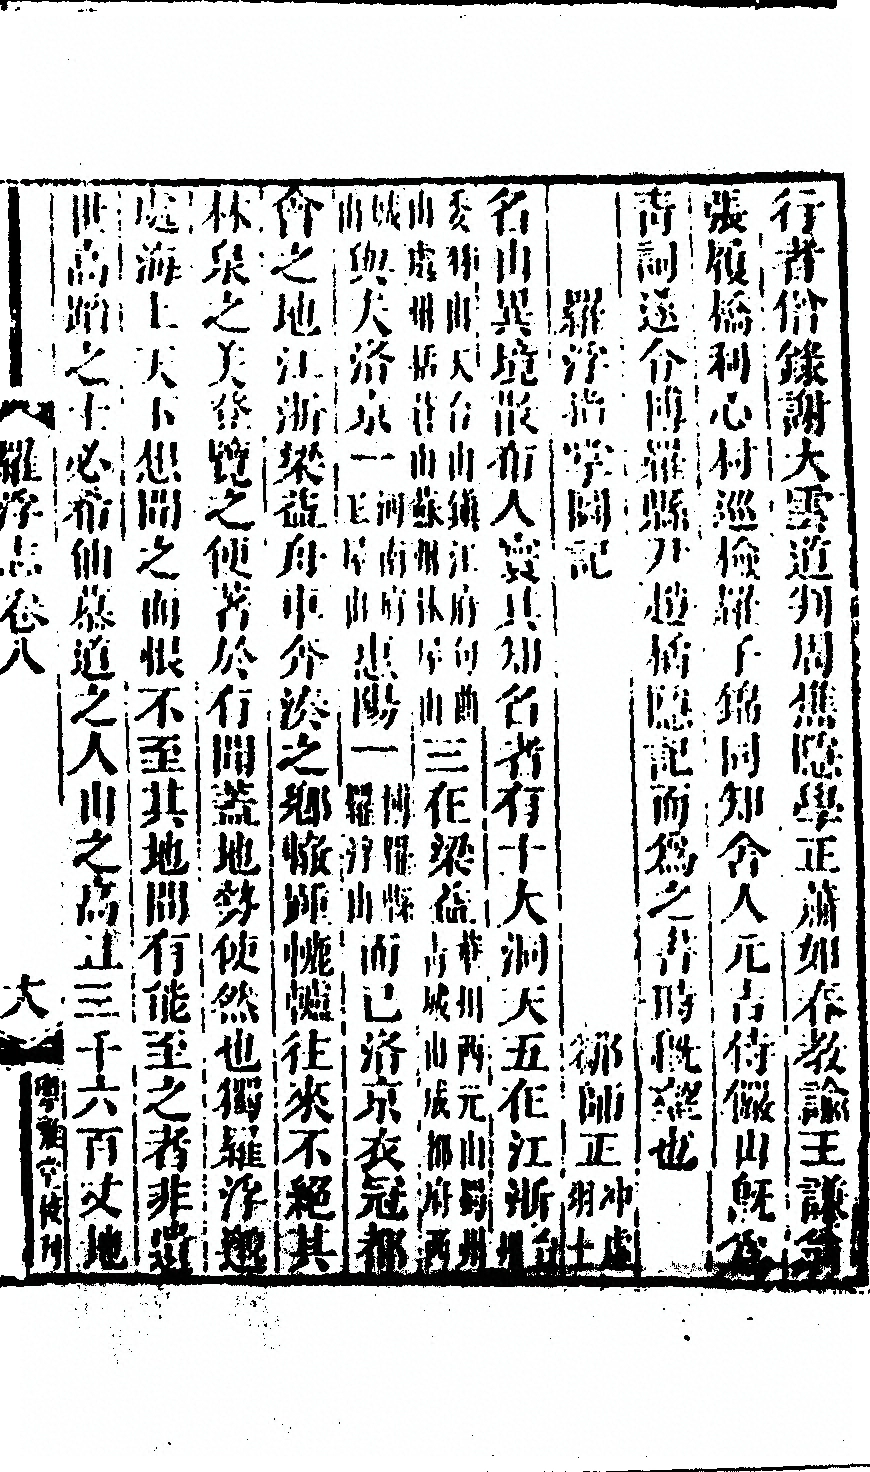 行者僧錄謝大雲道判周焦隱學正蕭如春教諭王謙翁
張履橋利心村巡檢羅子錦同知舍人元吉侍儼山旣爲
靑詞遂令博羅縣尹趙橋隱記而爲之書時旣望也
羅浮指掌圖記 鄒師正沖虛羽士
名山異境散布人寰其知名者有十大洞天五在江浙台州
委羽山天台山鎮江府句曲山處州括蒼山蘇州林屋山三在梁益華州西元山蜀州靑城山成都府西
城山與夫洛京一河南府王屋山惠陽一博羅縣羅浮山而已洛京衣冠都
會之地江浙梁益舟車奔湊之鄕輶軒幰轤往來不絕其
林泉之美登覽之便著於有聞蓋地勢使然也獨羅浮邈
處海上天下想聞之而恨不至其地間有能至之者非遺
世高蹈之士必希仙慕道之人山之高止三千六百丈地
羅浮志卷八 大 粵雅堂校刊